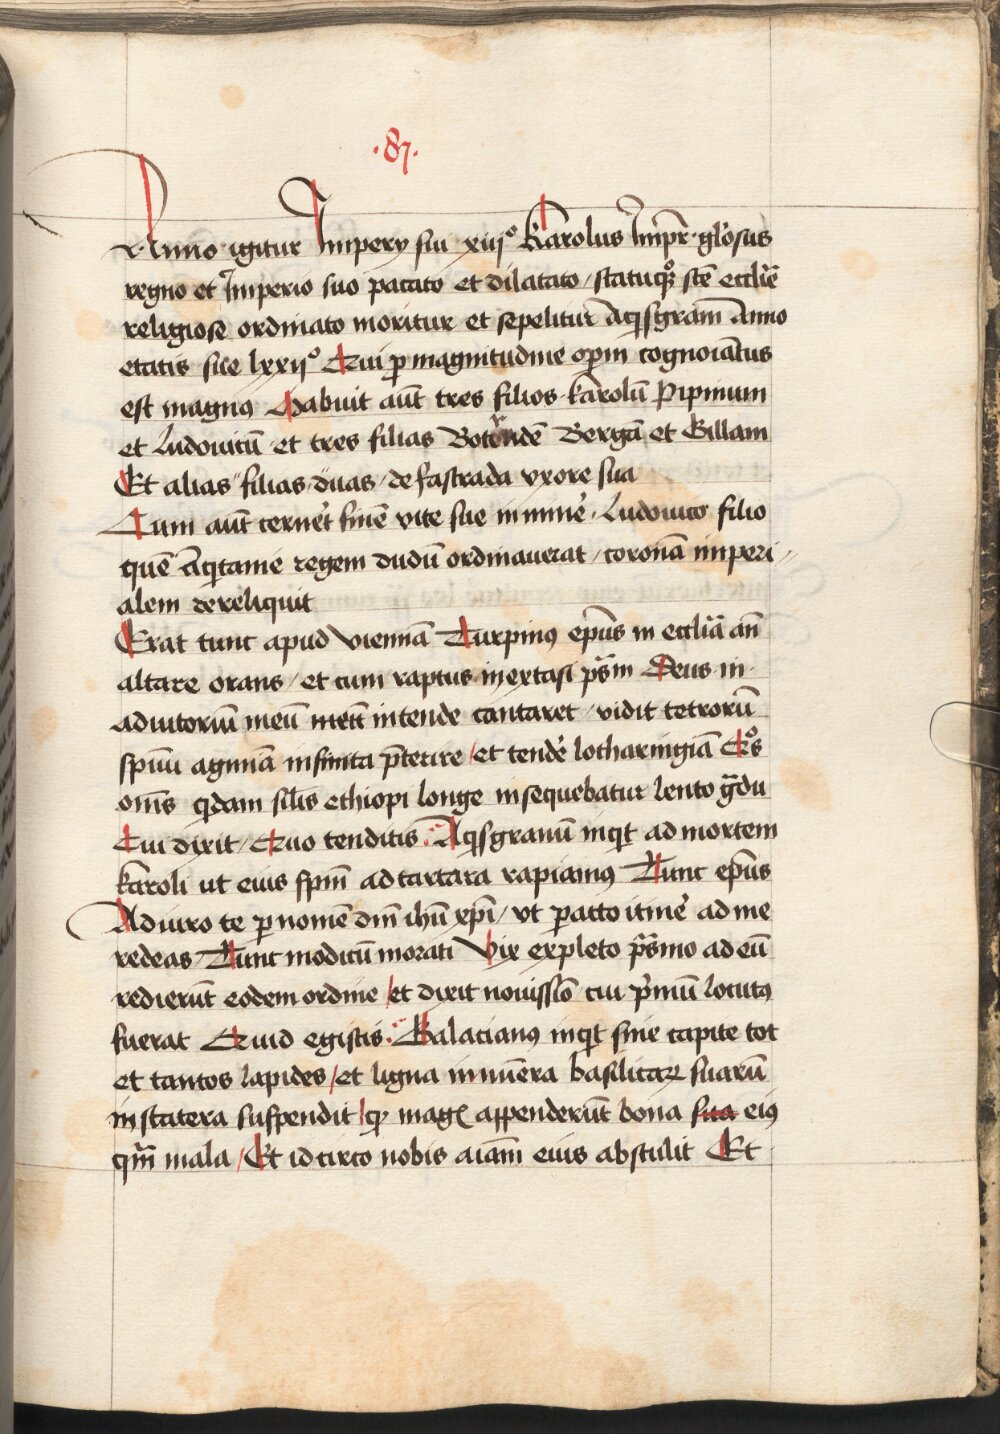 ·87·
Anno igitur Impery sui xiij° Karolus Imp̄r gl̄osus
regno et Imperio suo pacato et dilatato / statuqȝ stē eccl̄ie
religiose ordinato moritur et sepelitur Aq̄sgrani Anno
etatis sue lxxij° Qui ꝑ magnitudine oꝑm cognoīatus
est magnus Habuit aūt tres filios karolū Pipinum
et Ludovicū et tres filias Bergā et Gillam
Et alias filias duas / de fastrada vxore sua
Cum aūt cerneret finē vite sue īminē / Ludovico filio
quē Aq̄tanie regem dudū ordinaverat / coronā imperi
alem dereliquit
Erat tunc apud viennā Turpinus ep̄us in eccl̄ia an̄
altare orans / et cum raptus in extasi ps̄m Deus in
adiutoriū meū intende cantaret / vidit tetrorū
sp̄uū agmina infinita p̄terire / et tendē lotharingiā Quos
om̄s q̄dam sil̄is ethiopi longe insequebatur lento g̃du
Cui dixit / Quo tenditis Aq̄sgranū inq̄t ad mortem
karoli ut eius sp̄m ad tartara rapiamus Tunc ep̄us
Adiuro te ꝑ nomē dn̄i ihū xp̄i / vt ꝑacto itinē ad me
redeas Tunc modicū morati Vix expleto ps̄mo ad eū
redierūt eodem ordine / et dixit novissīo cui p̄mū locutus
fuerat Quid egistis Galacianus inq̄t sine capite tot
et tantos lapides / et ligna innūera basilicaꝝ suarū
in statera suspendit / q magꝭ appenderūt bona sua eius
qm̄ mala / Et idcirco nobis aīam eius abstulit Et